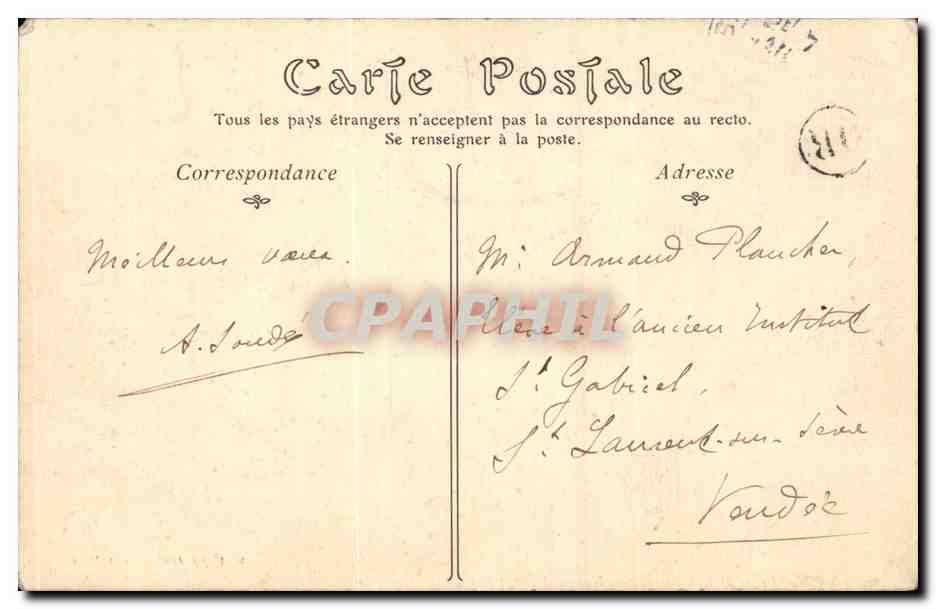 Carte Postale
Tous les pays étrangers n'acceptent pas la correspondance au recto.
Se renseigner à la poste.
Correspondance
Adresse
OR
Meilleurs vœux.
A. Soudé
M. Armand Plancher,
Elève à l'ancien Institut
St Gabriel,
St Laurent-sur-Sèvre
Vendée
CPAPHIL